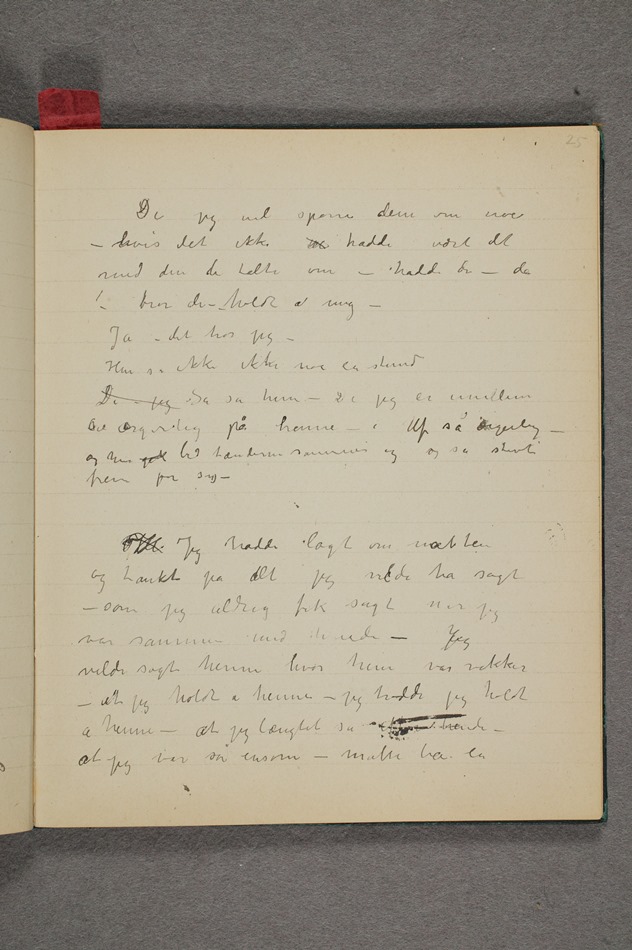 25
De jeg vil spørre dem om noe
– hvis det ikke hadde vært det
med den de talte om – hadde De – da
– holdt a mig –
Ja – det tror jeg –
Hun sa ikke ikke noe en stund
De – jeg Sa sa hun – Ve jeg er imellem
så ærgerlig på henne – Uf så ærgerlig –
og hun bed tænderne sammen og og så stivt
frem for sig –
Jeg hadde lagt om natten
og tænkt på alt jeg vilde ha sagt
– som jeg aldrig fik sagt når jeg
var sammen med hende – Jeg
vilde sagt henne hvor hun var vakker
– at jeg holdt a henne – jeg hadde jeg holdt
a henne – at jeg længtet så
at jeg var så ensom – måtte ha en